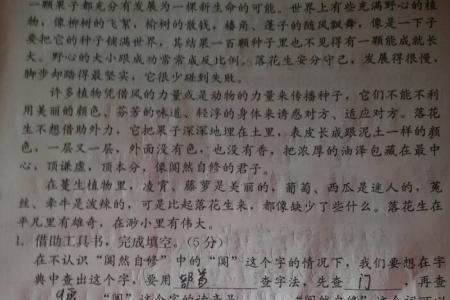 一颗果子都充分有发展为一棵新生命的可能。世界上有些充满野心的植
物,像柳树的飞絮,榆树的散钱,榛角、莲子的随风飘舞,像是一下子
要把它的种子铺满世界,其结果一百颗种子里也不见得有一颗能成就长
大。野心的大小跟成功常常成反比例。落花生安分守己,发展得很慢,
脚步却踏得最坚实,它很少碰到失败。
许多植物凭借风的力量或是动物的力量来传播种子,它们不能不利
用美丽的颜色、芬芳的味道、轻浮的身体来诱惑对方、适应对方。落花
生不想借助外力,它把果子深深地埋在土里,表皮长成跟泥土一样的颜
色,一层又一层,外面没有色,也没有香,把浓厚的油泽包藏在最中
心,顶谦虚,顶本分,像阒然自修的君子。
在蔓生植物里,凌霄、藤萝是美丽的,葡萄、西瓜是迷人的,菟
丝、牵牛是泼辣的,可是比起落花生来,都像缺少了些什么。落花生在
平凡里有雄奇,在渺小里有伟大。
1. 借助工具书,完成填空。(5分)
在不认识“阒然自修”中的“阒”这个字的情况下,我们要想在字
典中查出这个字,要用 部首 查字法,先查 门 ,再查
9画